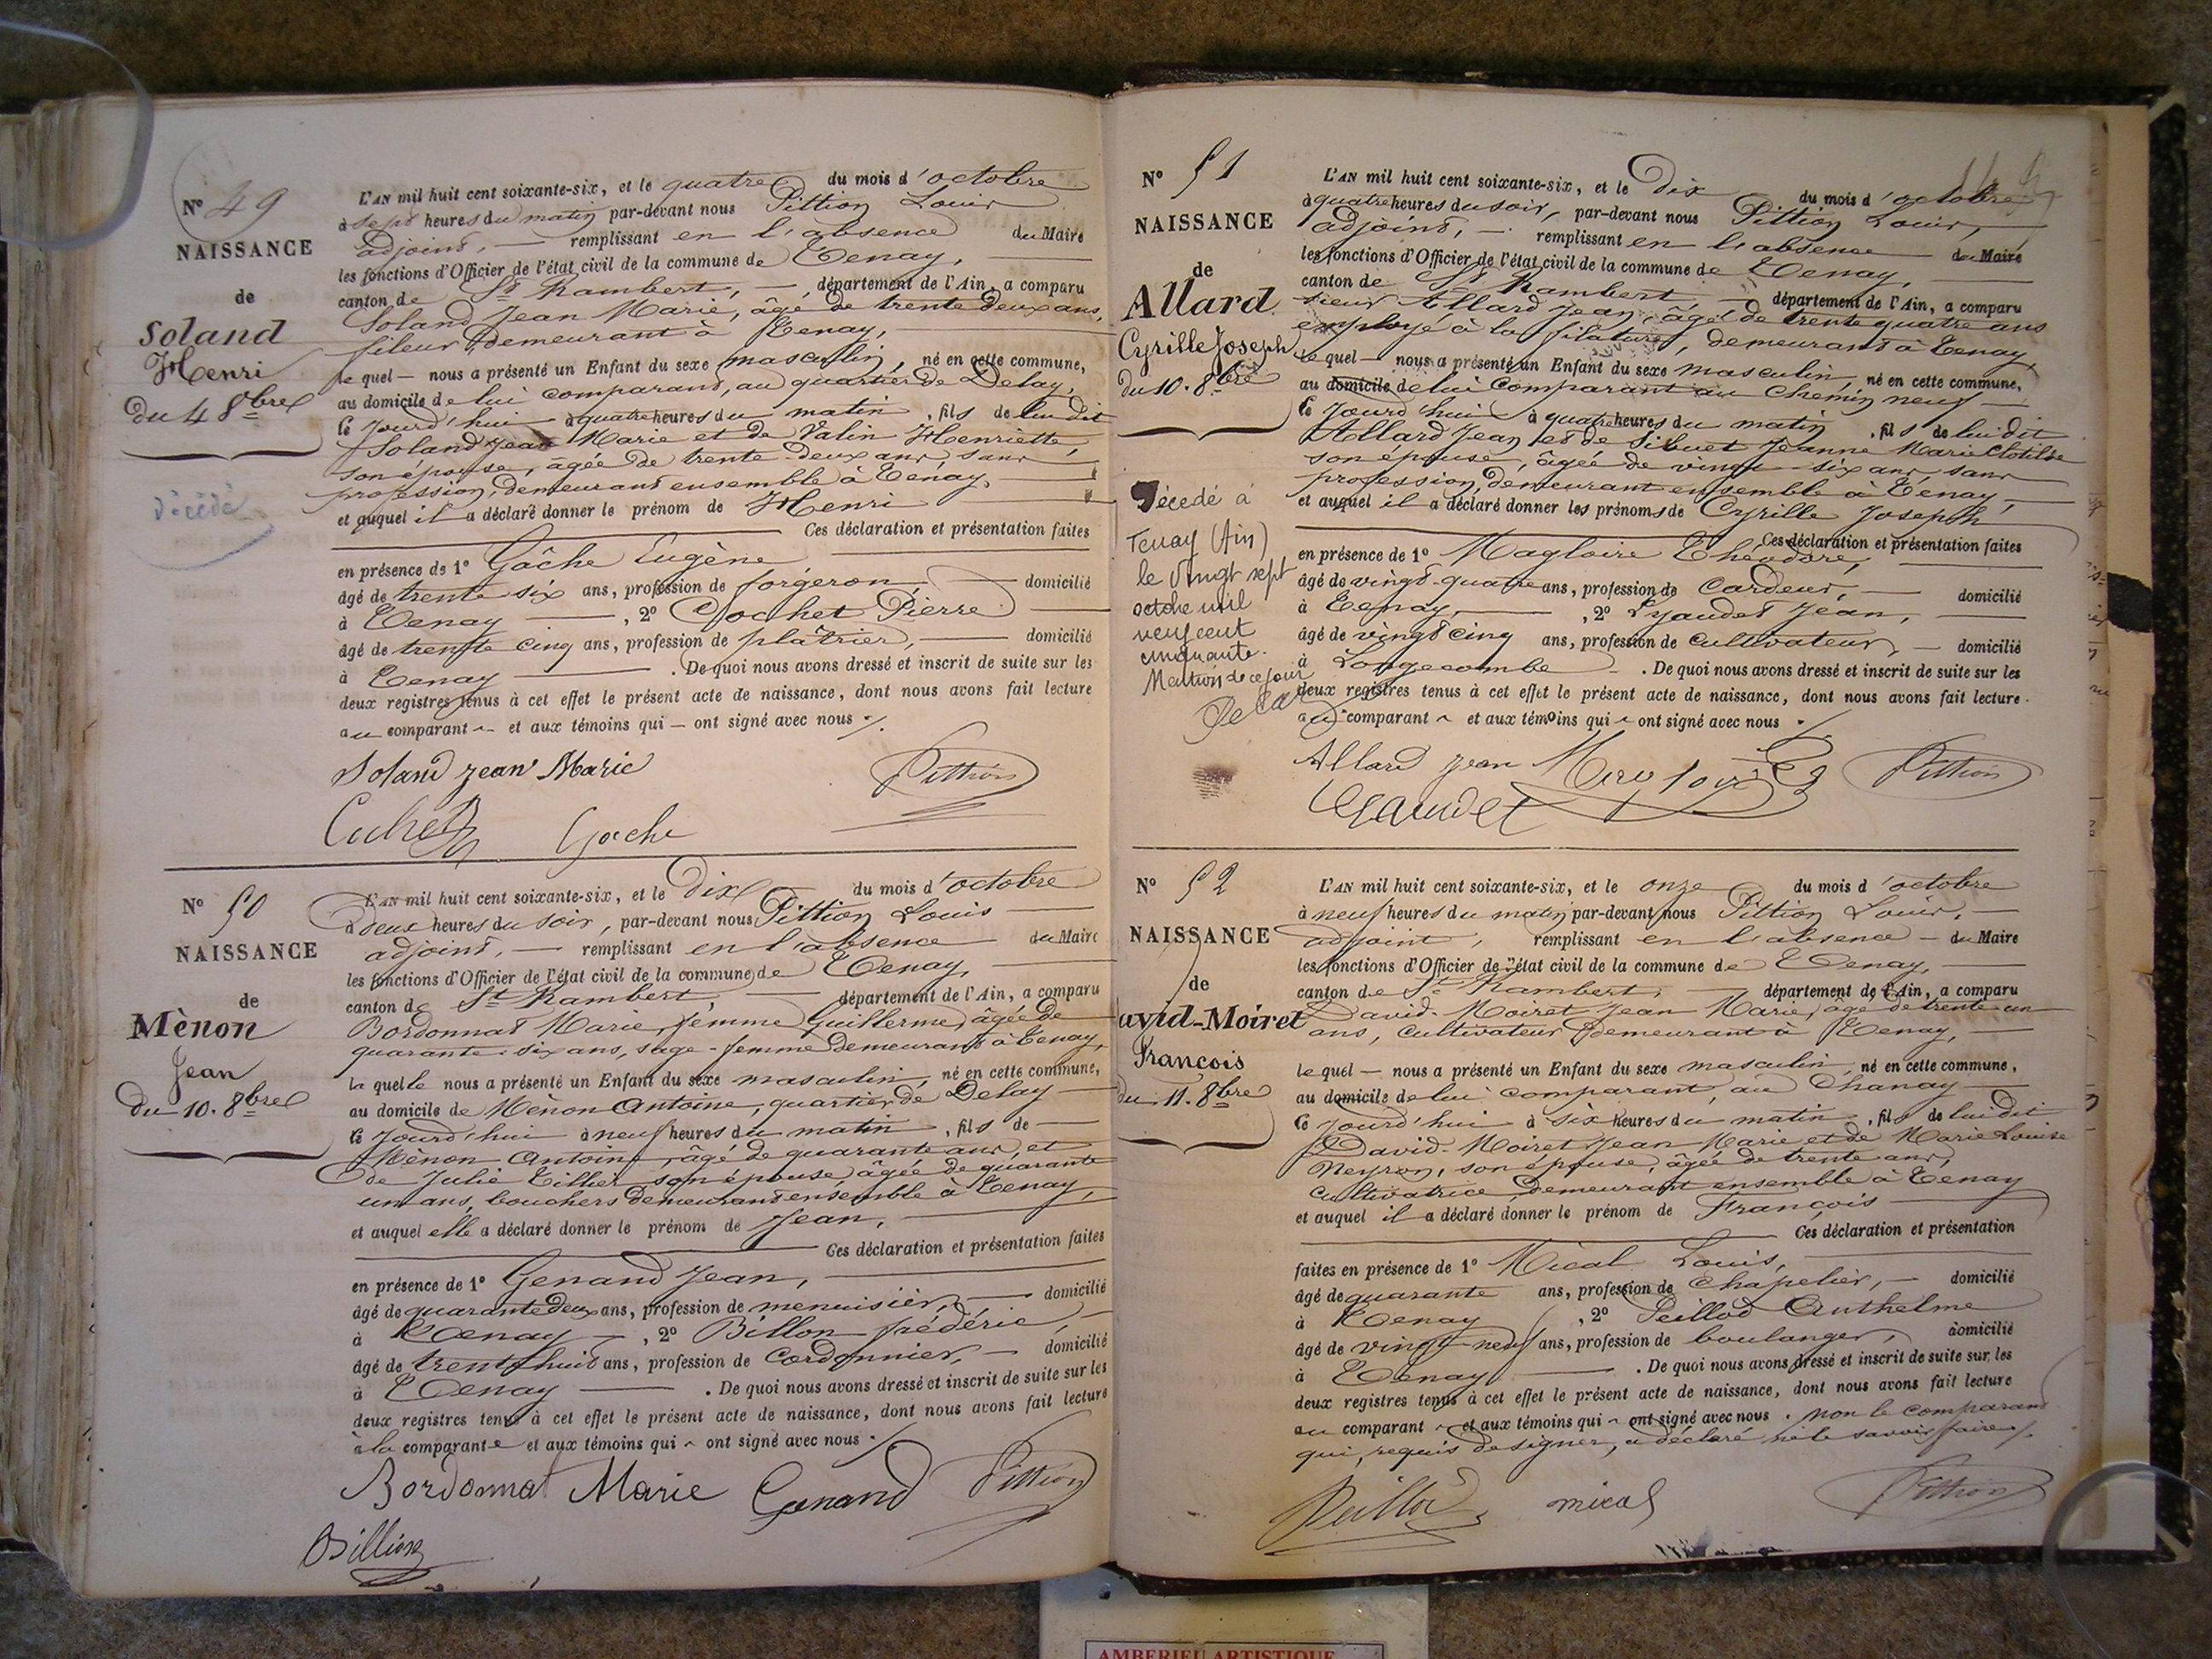 N° 49
NAISSANCE
de
Soland
Henri
Du 4 8bre
décédé
L'AN mil huit cent soixante-six, et le quatre du mois d'octobre
à sept heures du matin par-devant nous Pittion Louis
adjoint, — remplissant en l'absence du Maire
les fonctions d'Officier de l'état civil de la commune de Tenay,
canton de St Rambert, — département de l'Ain, a comparu
Soland Jean Marie, âgé de trente deux ans,
fileur, demeurant à Tenay,
lequel — nous a présenté un Enfant du sexe masculin, né en cette commune,
au domicile de lui comparant, au quartier de Delay,
ce jourd'hui à quatre heures du matin, fils de lui dit
Soland Jean Marie et de Valin Henriette,
son épouse, âgée de trente-deux ans, sans
profession, demeurant ensemble à Tenay,
et auquel il a déclaré donner le prénom de Henri
Ces déclaration et présentation faites
en présence de 1° Gâche Eugène
âgé de trente six ans, profession de forgeron, — domicilié
à Tenay — , 2° Cochet Pierre
âgé de trente cinq ans, profession de plâtrier, — domicilié
à Tenay — . De quoi nous avons dressé et inscrit de suite sur les
deux registres tenus à cet effet le présent acte de naissance, dont nous avons fait lecture
au comparant et aux témoins qui — ont signé avec nous
Soland Jean Marie Pittion
Gache
N° 50
NAISSANCE
de
Mènon
Jean
Du 10. 8bre
L'AN mil huit cent soixante-six, et le Dix du mois d'octobre
à deux heures du soir, par-devant nous Pittion Louis
adjoint, — remplissant en l'absence du Maire
les fonctions d'Officier de l'état civil de la commune de Tenay,
canton de St Rambert, — département de l'Ain, a comparu
Bordonnat Marie, femme Guillerme, âgée de
quarante-six ans, sage-femme demeurant à Tenay,
laquelle nous a présenté un Enfant du sexe masculin, né en cette commune,
au domicile de Mènon Antoine, quartier de Delay
ce jourd'hui à neuf heures du matin, fils de
Mènon Antoine, âgé de quarante ans, et
de Julie Tillier son épouse, âgée de quarante
un ans, bouchers demeurant ensemble à Tenay,
et auquel elle a déclaré donner le prénom de Jean,
Ces déclaration et présentation faites
en présence de 1° Genand Jean,
âgé de quarante deux ans, profession de menuisier, — domicilié
à Tenay — , 2° Billon frédéric,
âgé de trente huit ans, profession de Cordonnier, — domicilié
à Tenay — . De quoi nous avons dressé et inscrit de suite sur les
deux registres tenus à cet effet le présent acte de naissance, dont nous avons fait lecture
à la comparante et aux témoins qui ont signé avec nous
Bordonnat Marie Genand Pittion
Billion
N° 51
NAISSANCE
de
Allard
Cyrille Joseph
du 10. 8bre
Décédé à
Tenay (Ain)
le vingt sept
octobre mil
neuf cent
cinquante.
Mention de ce jour
L'AN mil huit cent soixante-six, et le Dix du mois d'octobre
à quatre heures du soir, par-devant nous Pittion Louis,
adjoint, — remplissant en l'absence du Maire
les fonctions d'Officier de l'état civil de la commune de Tenay,
canton de St Rambert, — département de l'Ain, a comparu
sieur Allard Jean, âgé de trente quatre ans
employé à la filature, demeurant à Tenay,
lequel — nous a présenté un Enfant du sexe masculin, né en cette commune,
au domicile de lui comparant au Chemin neuf
ce jourd'hui à quatre heures du matin, fils de lui dit
Allard Jean et de Sibuet Jeanne Marie Clotilde
son épouse, âgée de vingt-six ans, sans
profession, demeurant ensemble à Tenay,
et auquel il a déclaré donner les prénoms de Cyrille Joseph
Ces déclaration et présentation faites
en présence de 1° Magloire Théodore,
âgé de vingt-quatre ans, profession de Cardeur, — domicilié
à Tenay, — , 2° Lyaudet Jean,
âgé de vingt cinq ans, profession de Cultivateur, — domicilié
à Longecombe . De quoi nous avons dressé et inscrit de suite sur les
deux registres tenus à cet effet le présent acte de naissance, dont nous avons fait lecture
au comparant et aux témoins qui ont signé avec nous
Allard Jean Pittion
Lyaudet
N° 52
NAISSANCE
de
avid-Moiret
François
du 11. 8bre
L'AN mil huit cent soixante-six, et le onze du mois d'octobre
à neuf heures du matin par-devant nous Pittion Louis,
adjoint, remplissant en l'absence — du Maire
les fonctions d'Officier de l'état civil de la commune de Tenay,
canton de St Rambert, — département de l'Ain, a comparu
David-Moiret Jean Marie, âgé de trente un
ans, cultivateur demeurant à Tenay,
lequel — nous a présenté un Enfant du sexe masculin, né en cette commune,
au domicile de lui comparant, au Chanay
ce jourd'hui à six heures du matin, fils de lui dit
David-Moiret Jean Marie et de Marie Louise
Neyron, son épouse, âgée de trente ans,
cultivatrice demeurant ensemble à Tenay
et auquel il a déclaré donner le prénom de François
Ces déclaration et présentation
faites en présence de 1° Mical Louis,
âgé de quarante ans, profession de Chapelier, — domicilié
à Tenay , 2° Peillod Anthelme
âgé de vingt-neuf ans, profession de boulanger, domicilié
à Tenay — . De quoi nous avons dressé et inscrit de suite sur les
deux registres tenus à cet effet le présent acte de naissance, dont nous avons fait lecture
au comparant et aux témoins qui ont signé avec nous . non le comparant
qui, requis de signer, a déclaré ne le savoir faire
Peillod mical Pittion
AMBERIEU ARTISTIQUE